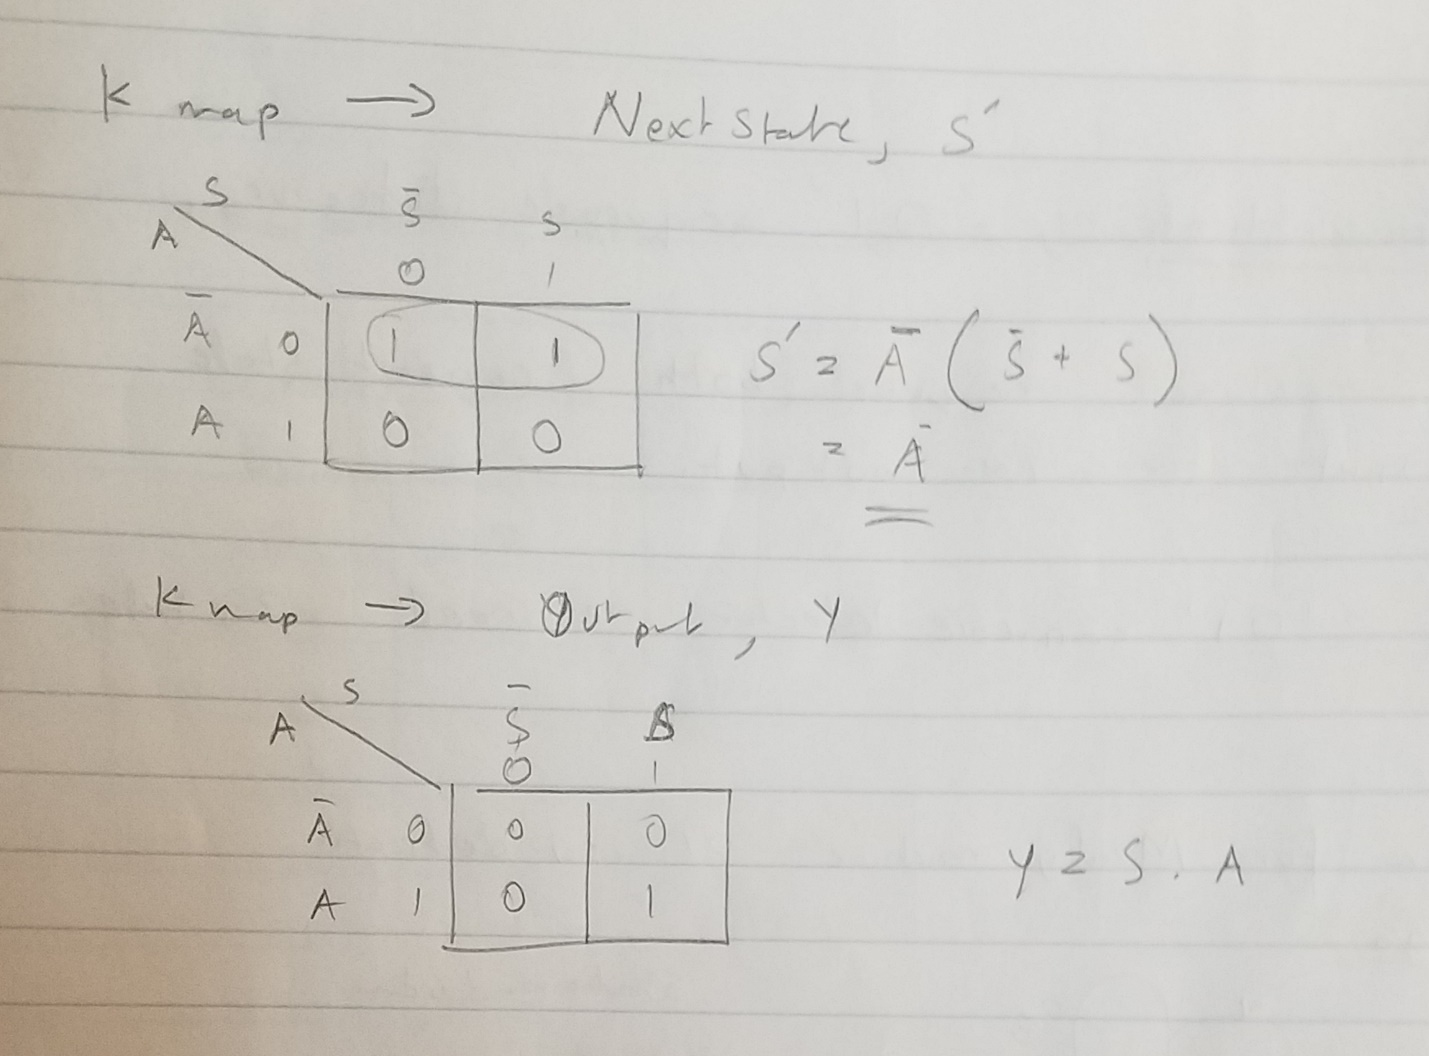 K map → Next State, S'
S
A
S̄ S
0 1
Ā 0 1 1
A 1 0 0
S' = Ā ( S̄ + S )
= Ā
K map → Output, Y
S
A
S̄ S
0 1
Ā 0 0 0
A 1 0 1
Y = S . A